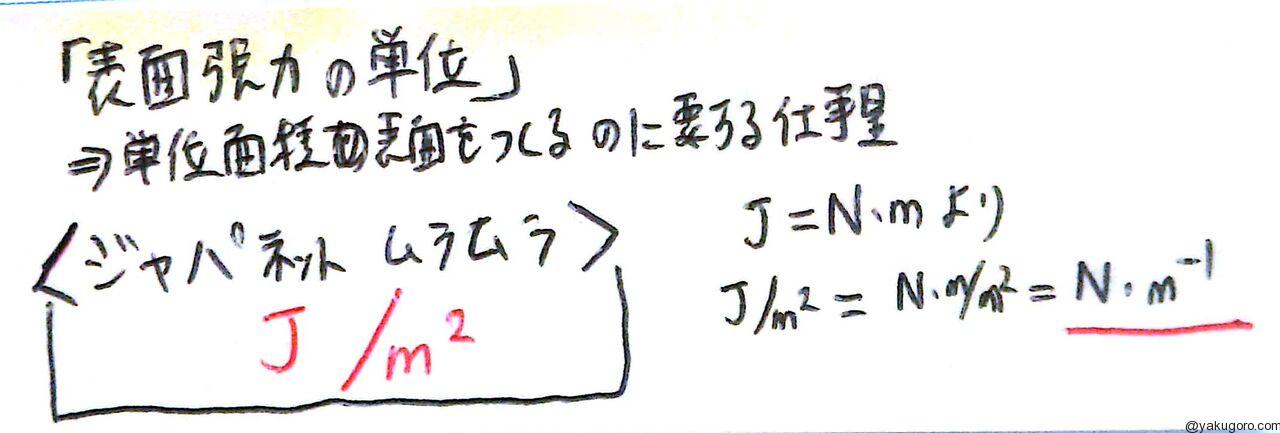 「表面張力の単位」
⇒単位面積の表面をつくるのに要する仕事量
<ジャパネット ムラムラ>
J/m²
J=N・mより
J/m²=N・m/m²=N・m⁻¹
@yakugoro.com